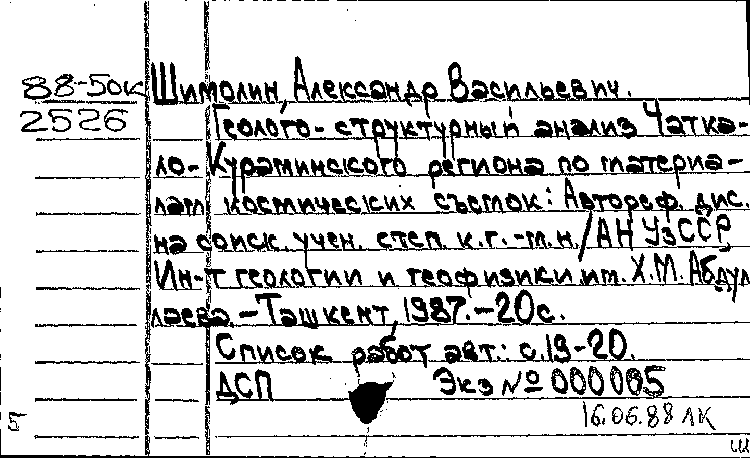 88-50к Шимолин, Александр Васильевич.
2526 Геолого-структурный анализ Чатка-
ло-Кураминского региона по материа-
лам космических съемок: Автореф. дис.
на соиск. учен. степ. к.г.-м.н./АН УзССР
Ин-т геологии и геофизики им. Х.М. Абдул
лаева.-Ташкент, 1987.-20с.
Список работ авт.: с.19-20.
ДСП Экз № 000005
16.06.88 ЛК
5
Ш